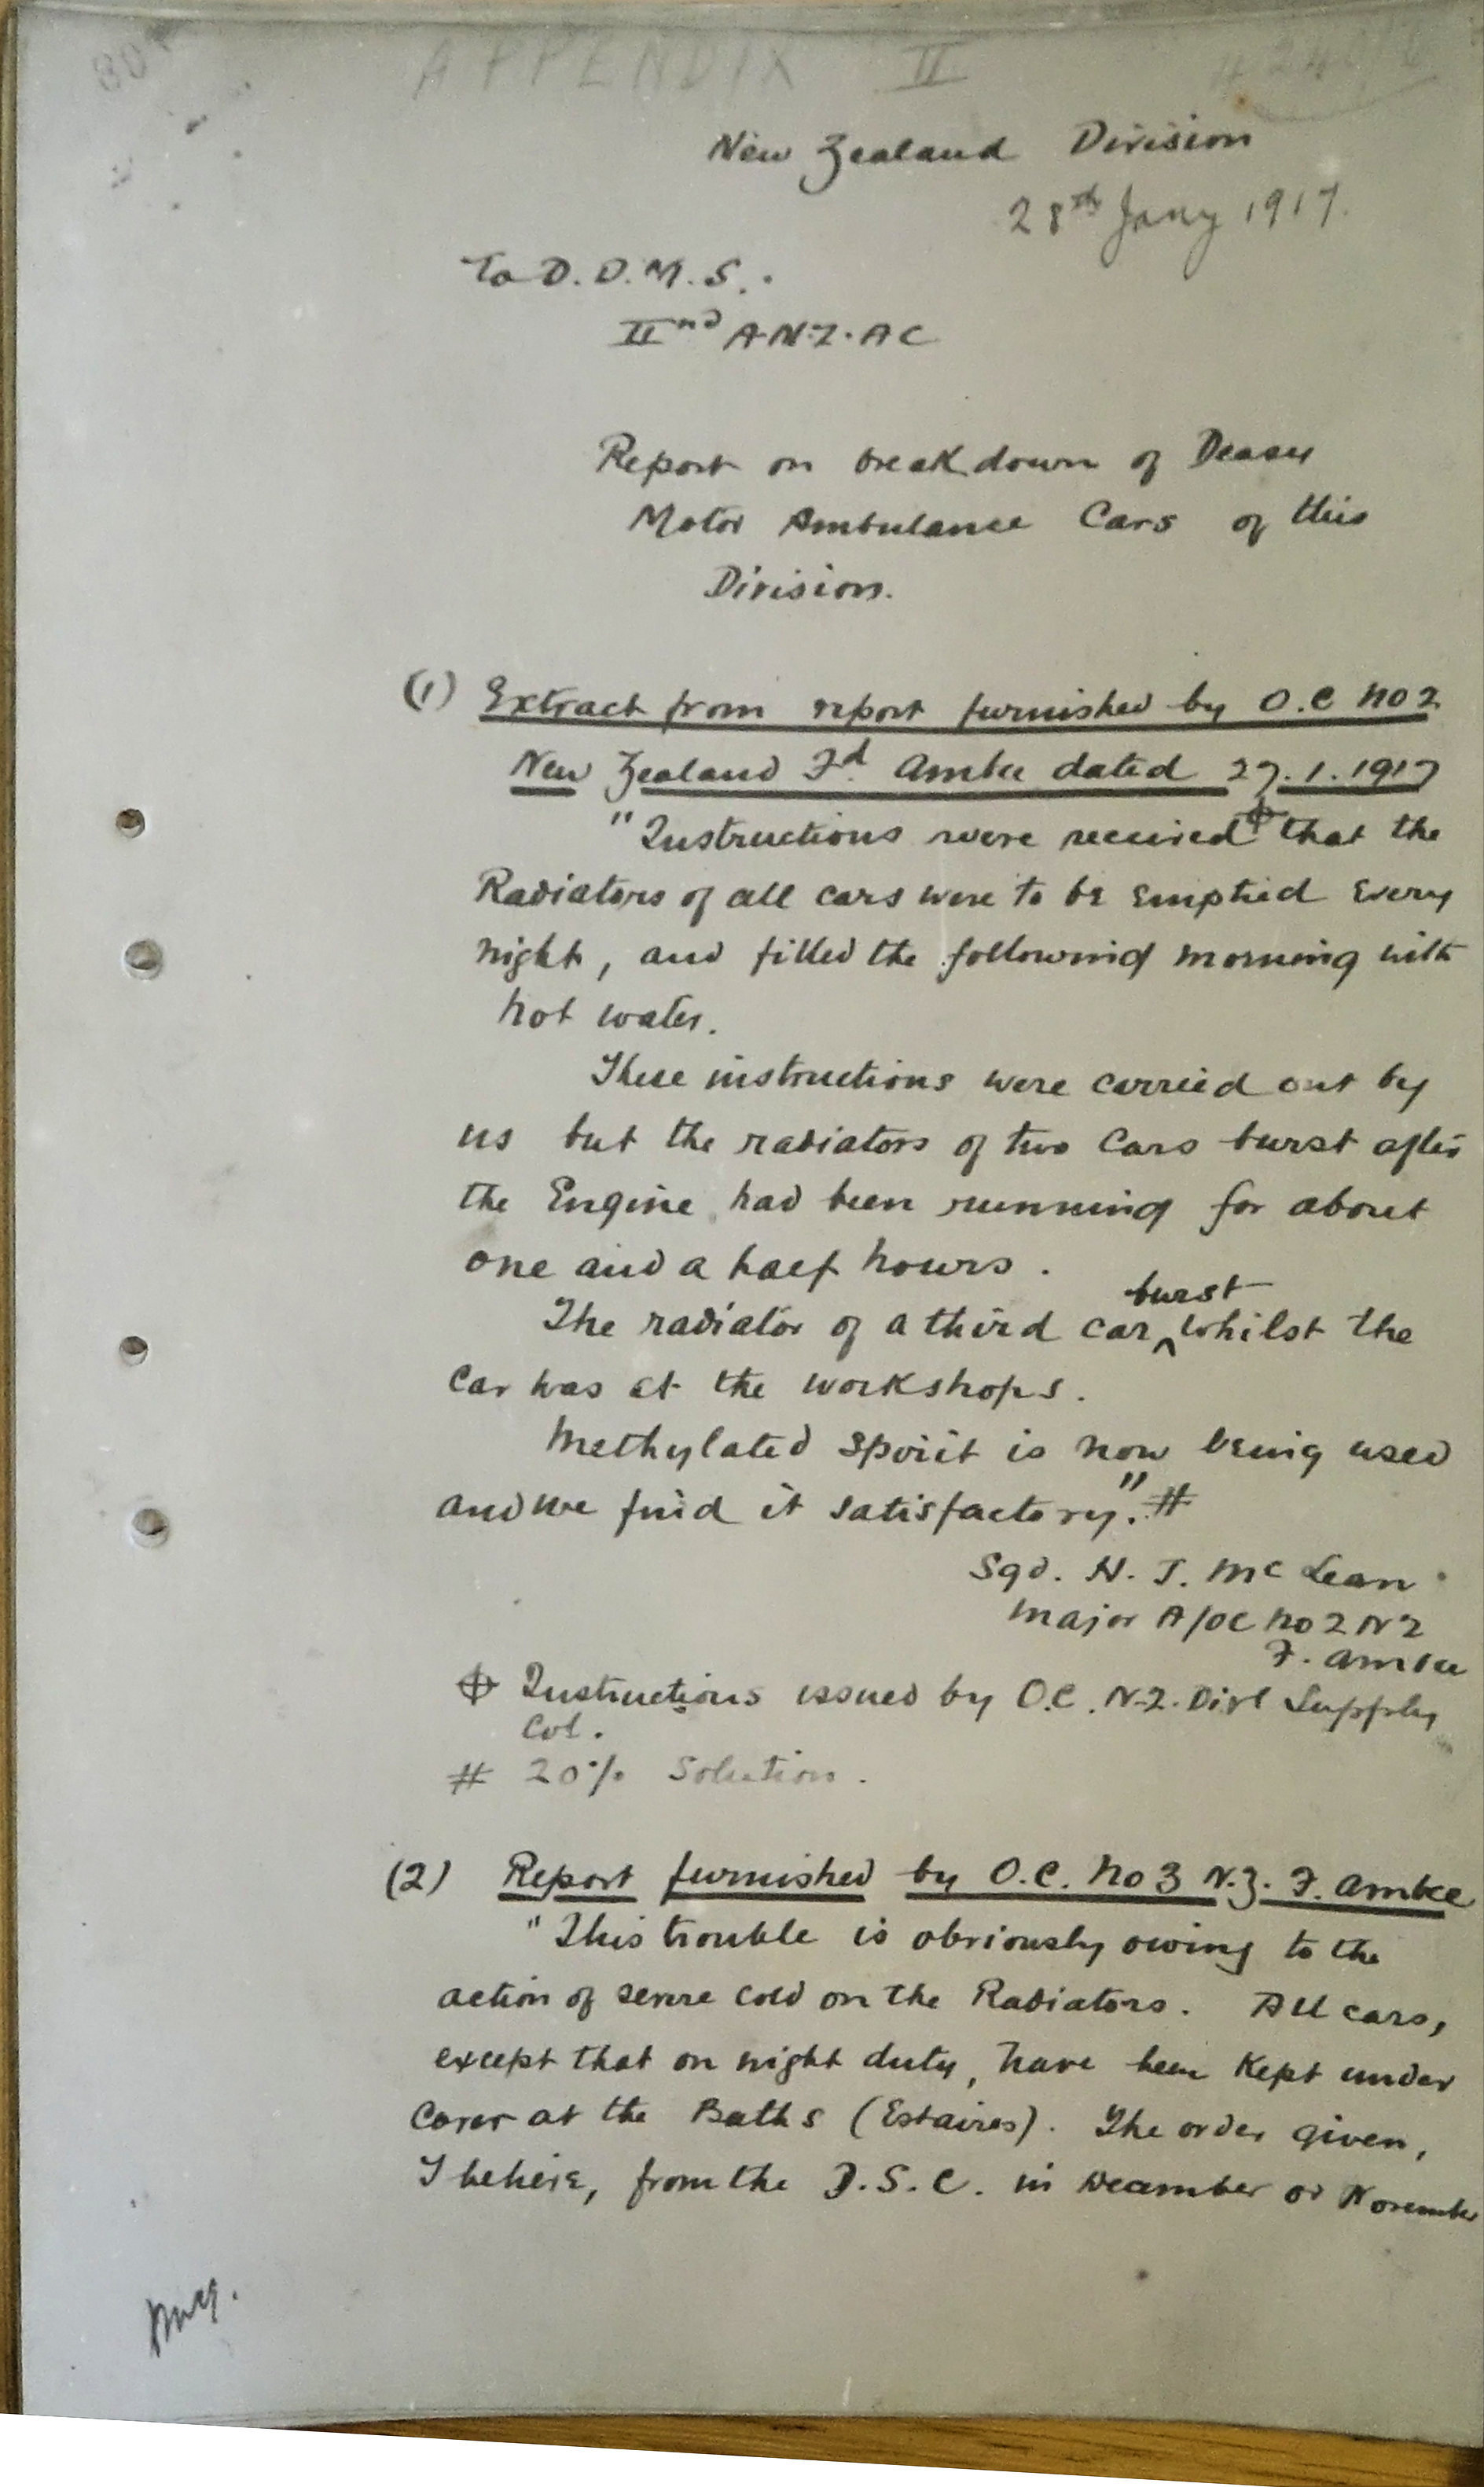 APPENDIX II
New Zealand Division
28th Jany 1917.
To D.D.M.S.
IInd A.N.Z.A.C
Report on breakdown of Deasy
Motor Ambulance Cars of this
Division.
(1) Extract from report furnished by O.C No 2
New Zealand Fd Ambce dated 27.1.1917
"Instructions were received ⌖ that the
Radiators of all cars were to be Emptied Every
night, and filled the following morning with
hot water.
These instructions were carried out by
us but the radiators of two Cars burst after
the Engine had been running for about
one and a half hours.
burst
The radiator of a third car ^ whilst the
Car was at the workshops.
Methylated Spirit is now being used
and we find it satisfactory". #
Sgd. N. J. Mc Lean
Major A/OC No 2 NZ
F. Ambce
⌖ Instructions issued by O.C. N.Z. Divl Supply
Col.
# 20% Solution.
(2) Report furnished by O.C. No 3 N.Z. F. Ambce
"This trouble is obviously owing to the
action of severe cold on the Radiators. All cars,
except that on night duty, have been kept under
Cover at the Baths (Estaires). The order given,
I believe, from the D.S.C. in December or November